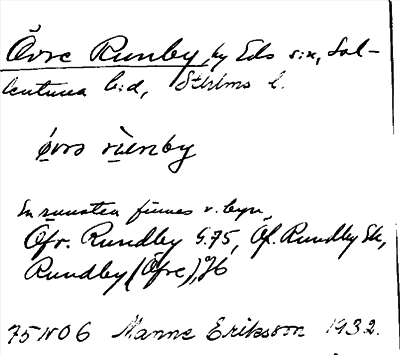 Övre Runby, by Eds s:n, Sol-
lentuna h:d, Sthlms l.
øvrə rùnby
En runsten finnes v. byn.
Öfr. Rundby G.75, Öf. Rundby Sk,
Rundby (Öfre), Jb
75 NO 6 Manne Eriksson 1932.